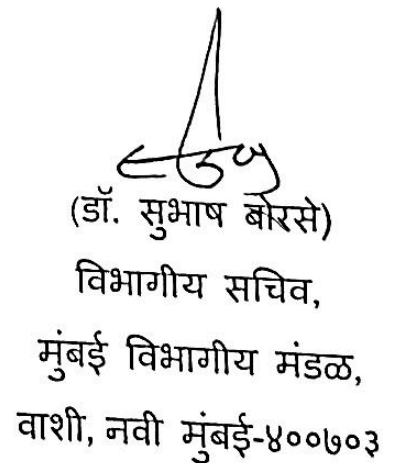 (डॉ. सुभाष बोरसे)
विभागीय सचिव,
मुंबई विभागीय मंडळ,
वाशी, नवी मुंबई-४००७०३